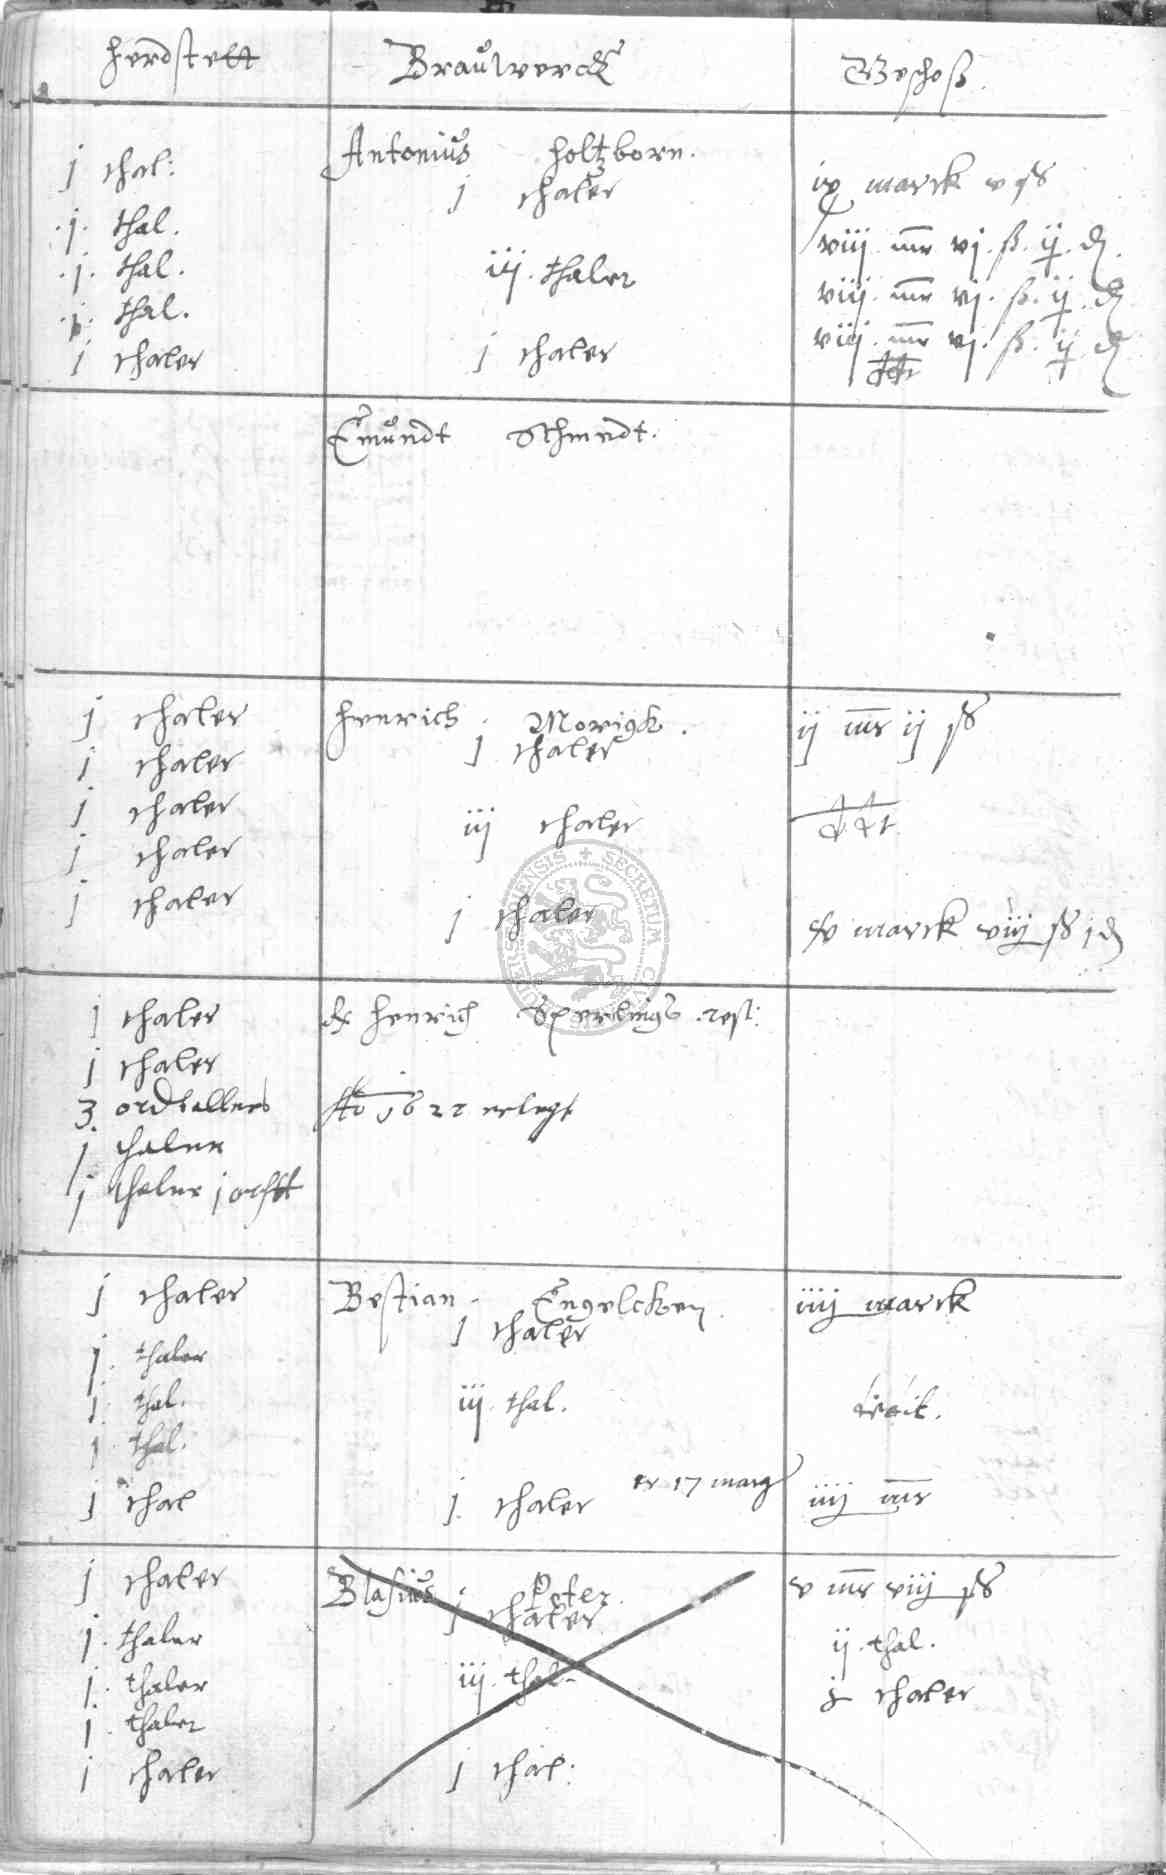 herdstett Brauwerck Geschoß
Antonius holtzborn.
j thal: j thaler ix marck v ß
.j. thal. viij mr vj. ß. ij. d.
.j. thal. iij. thaler viij. mr vj. ß. ij. d
.j. thal. viij. mr vj. ß. ij d
j thaler j thaler
Emundt Schmidt.
j thaler henrich Morigk. ij mr ij ß
j thaler j thaler
j thaler iij thaler
j thaler
j thaler j thaler marck viij ß j d
j thaler henrich Sperlings rest:
j thaler
3 ordtallers Ao 1622 erlegt
j thaler
j thaler j ortt
j thaler Bestian Engelcken. iiij marck
j. thaler j thaler
j. thal. iij. thal.
j. thal.
j thal j. thaler 17 marg iiij mr
j thaler Blasius Peter. v mr viij ß
j. thaler j thaler ij. thal.
j. thaler iij. thal. j thaler
j. thaler
j thaler j thal:
SECRETUM CIVI